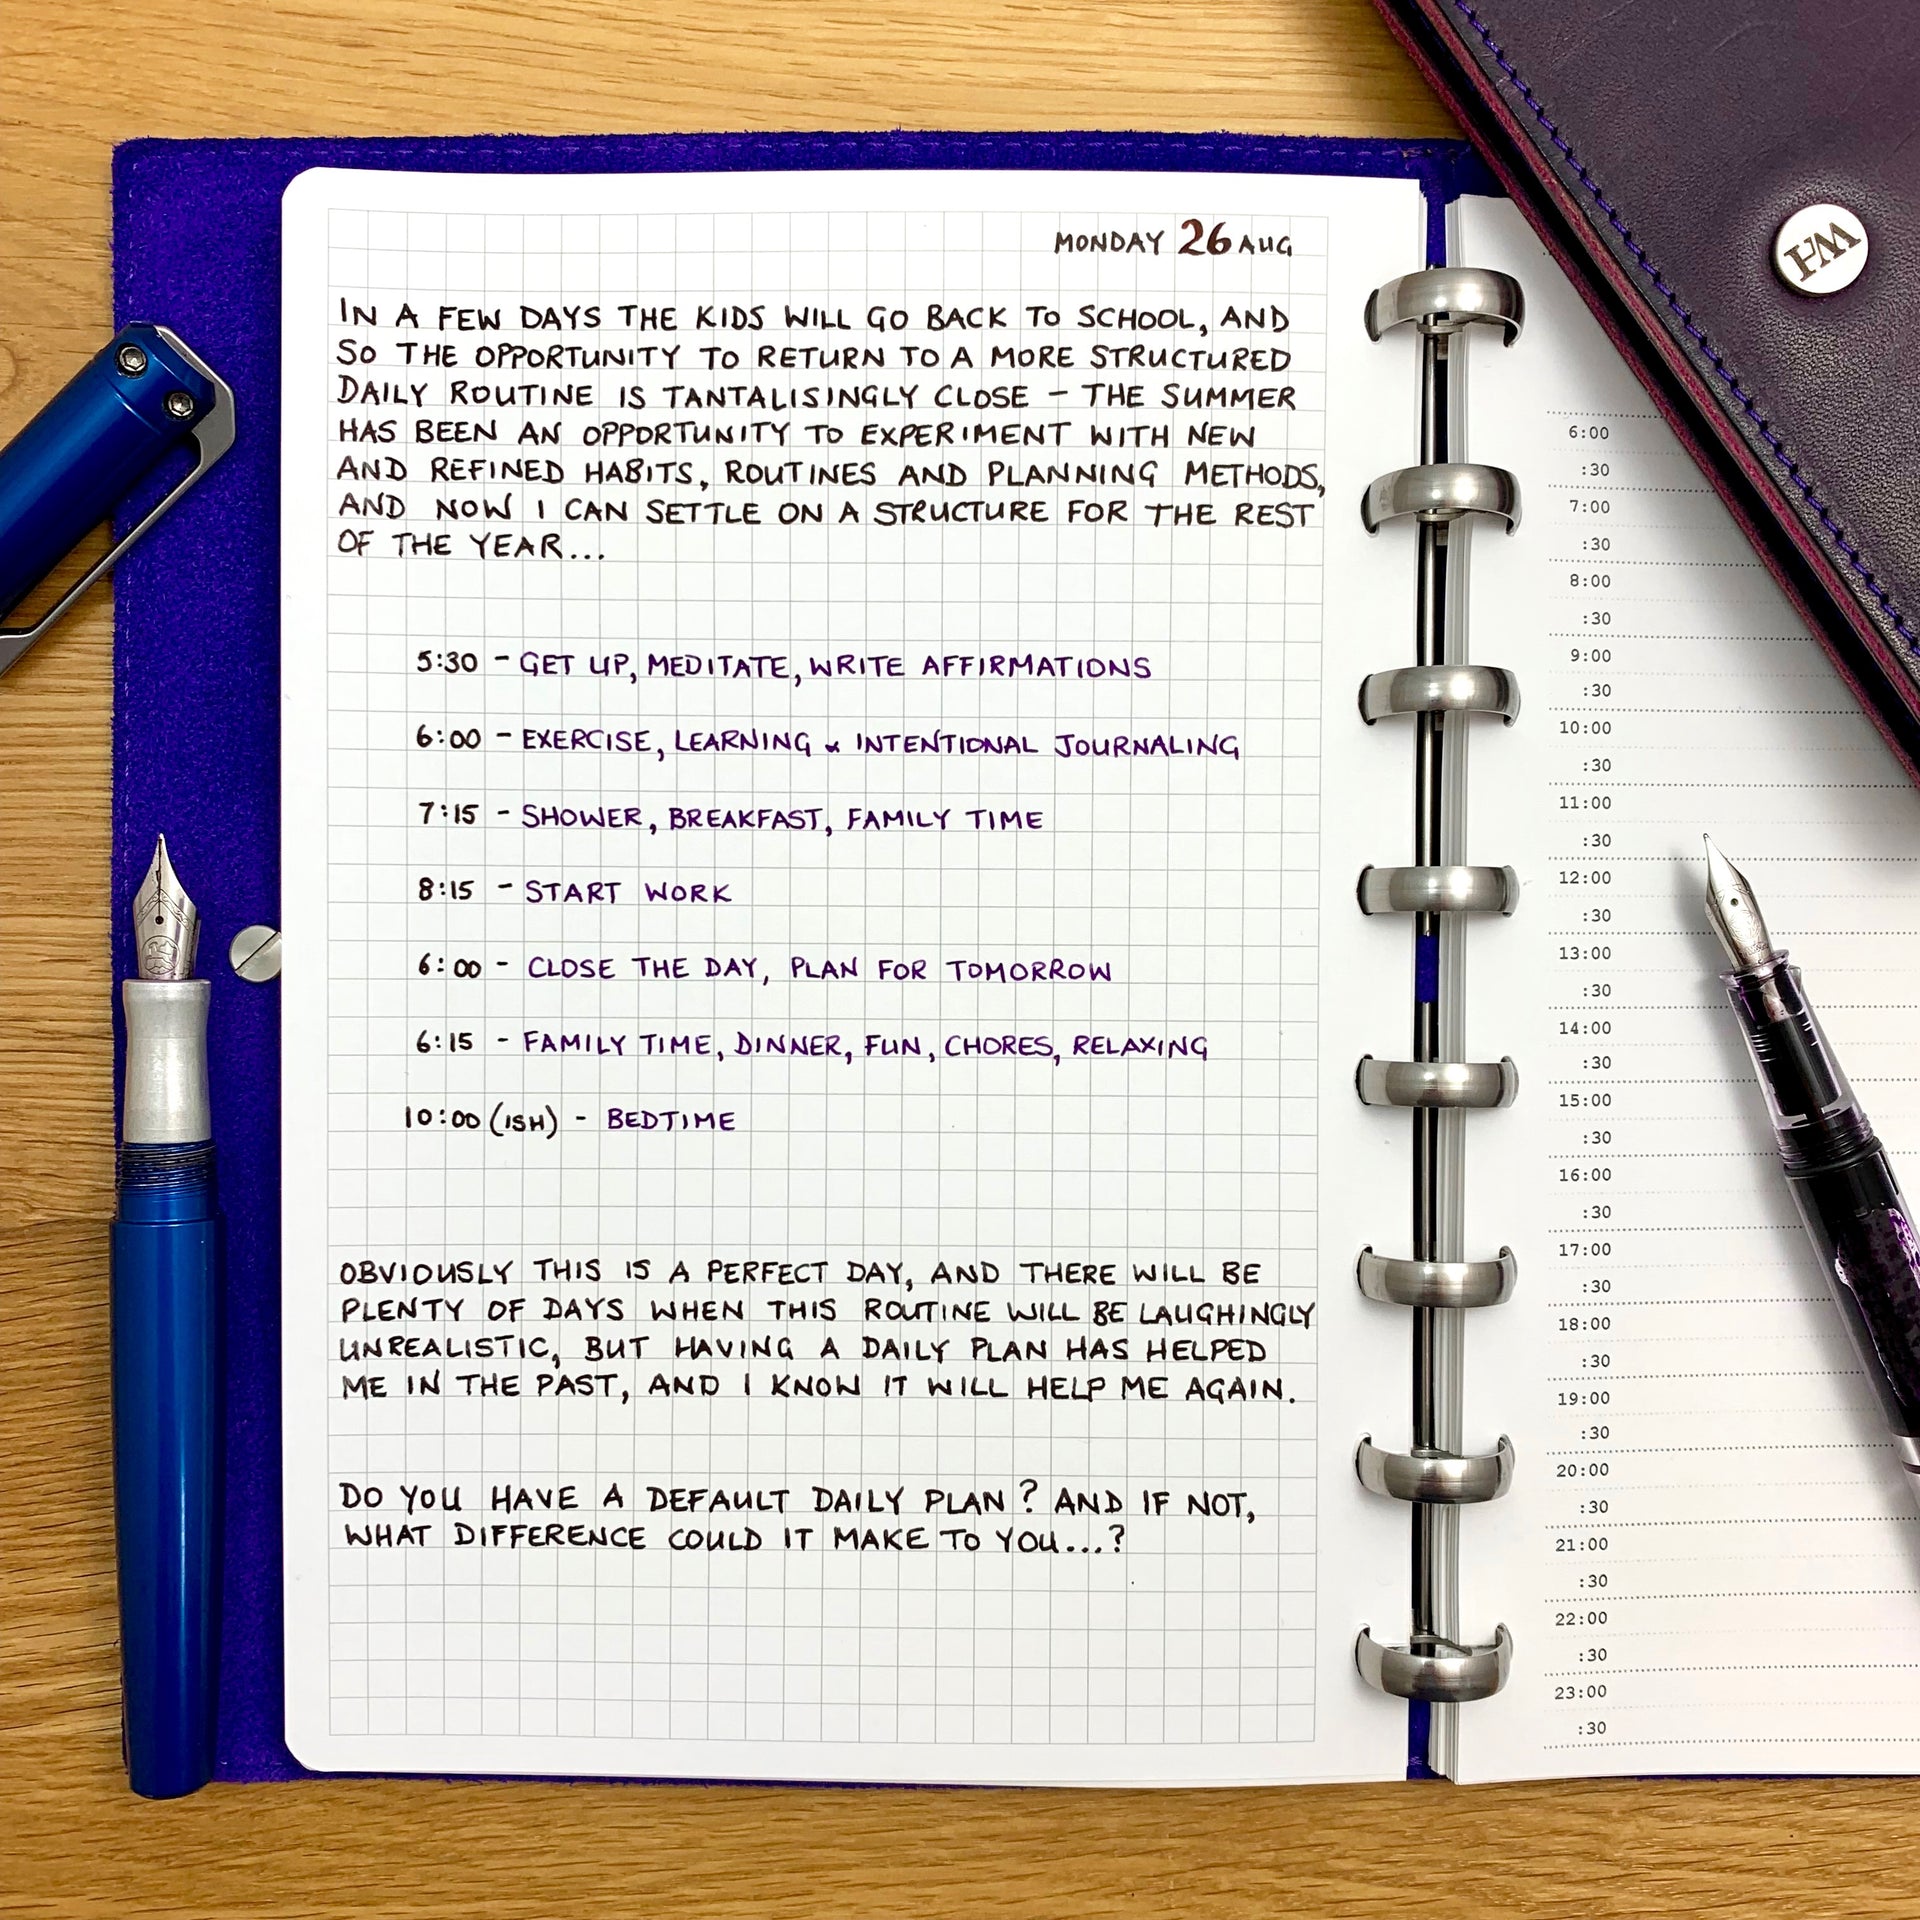 MONDAY 26 AUG
IN A FEW DAYS THE KIDS WILL GO BACK TO SCHOOL, AND
SO THE OPPORTUNITY TO RETURN TO A MORE STRUCTURED
DAILY ROUTINE IS TANTALISINGLY CLOSE – THE SUMMER
HAS BEEN AN OPPORTUNITY TO EXPERIMENT WITH NEW
AND REFINED HABITS, ROUTINES AND PLANNING METHODS,
AND NOW I CAN SETTLE ON A STRUCTURE FOR THE REST
OF THE YEAR...
5:30 – GET UP, MEDITATE, WRITE AFFIRMATIONS
6:00 – EXERCISE, LEARNING & INTENTIONAL JOURNALING
7:15 – SHOWER, BREAKFAST, FAMILY TIME
8:15 – START WORK
6:00 – CLOSE THE DAY, PLAN FOR TOMORROW
6:15 – FAMILY TIME, DINNER, FUN, CHORES, RELAXING
10:00 (ISH) – BEDTIME
OBVIOUSLY THIS IS A PERFECT DAY, AND THERE WILL BE
PLENTY OF DAYS WHEN THIS ROUTINE WILL BE LAUGHINGLY
UNREALISTIC, BUT HAVING A DAILY PLAN HAS HELPED
ME IN THE PAST, AND I KNOW IT WILL HELP ME AGAIN.
DO YOU HAVE A DEFAULT DAILY PLAN? AND IF NOT,
WHAT DIFFERENCE COULD IT MAKE TO YOU...?
6:00
:30
7:00
:30
8:00
:30
9:00
:30
10:00
:30
11:00
:30
12:00
:30
13:00
:30
14:00
:30
15:00
:30
16:00
:30
17:00
:30
18:00
:30
19:00
:30
20:00
:30
21:00
:30
22:00
:30
23:00
:30